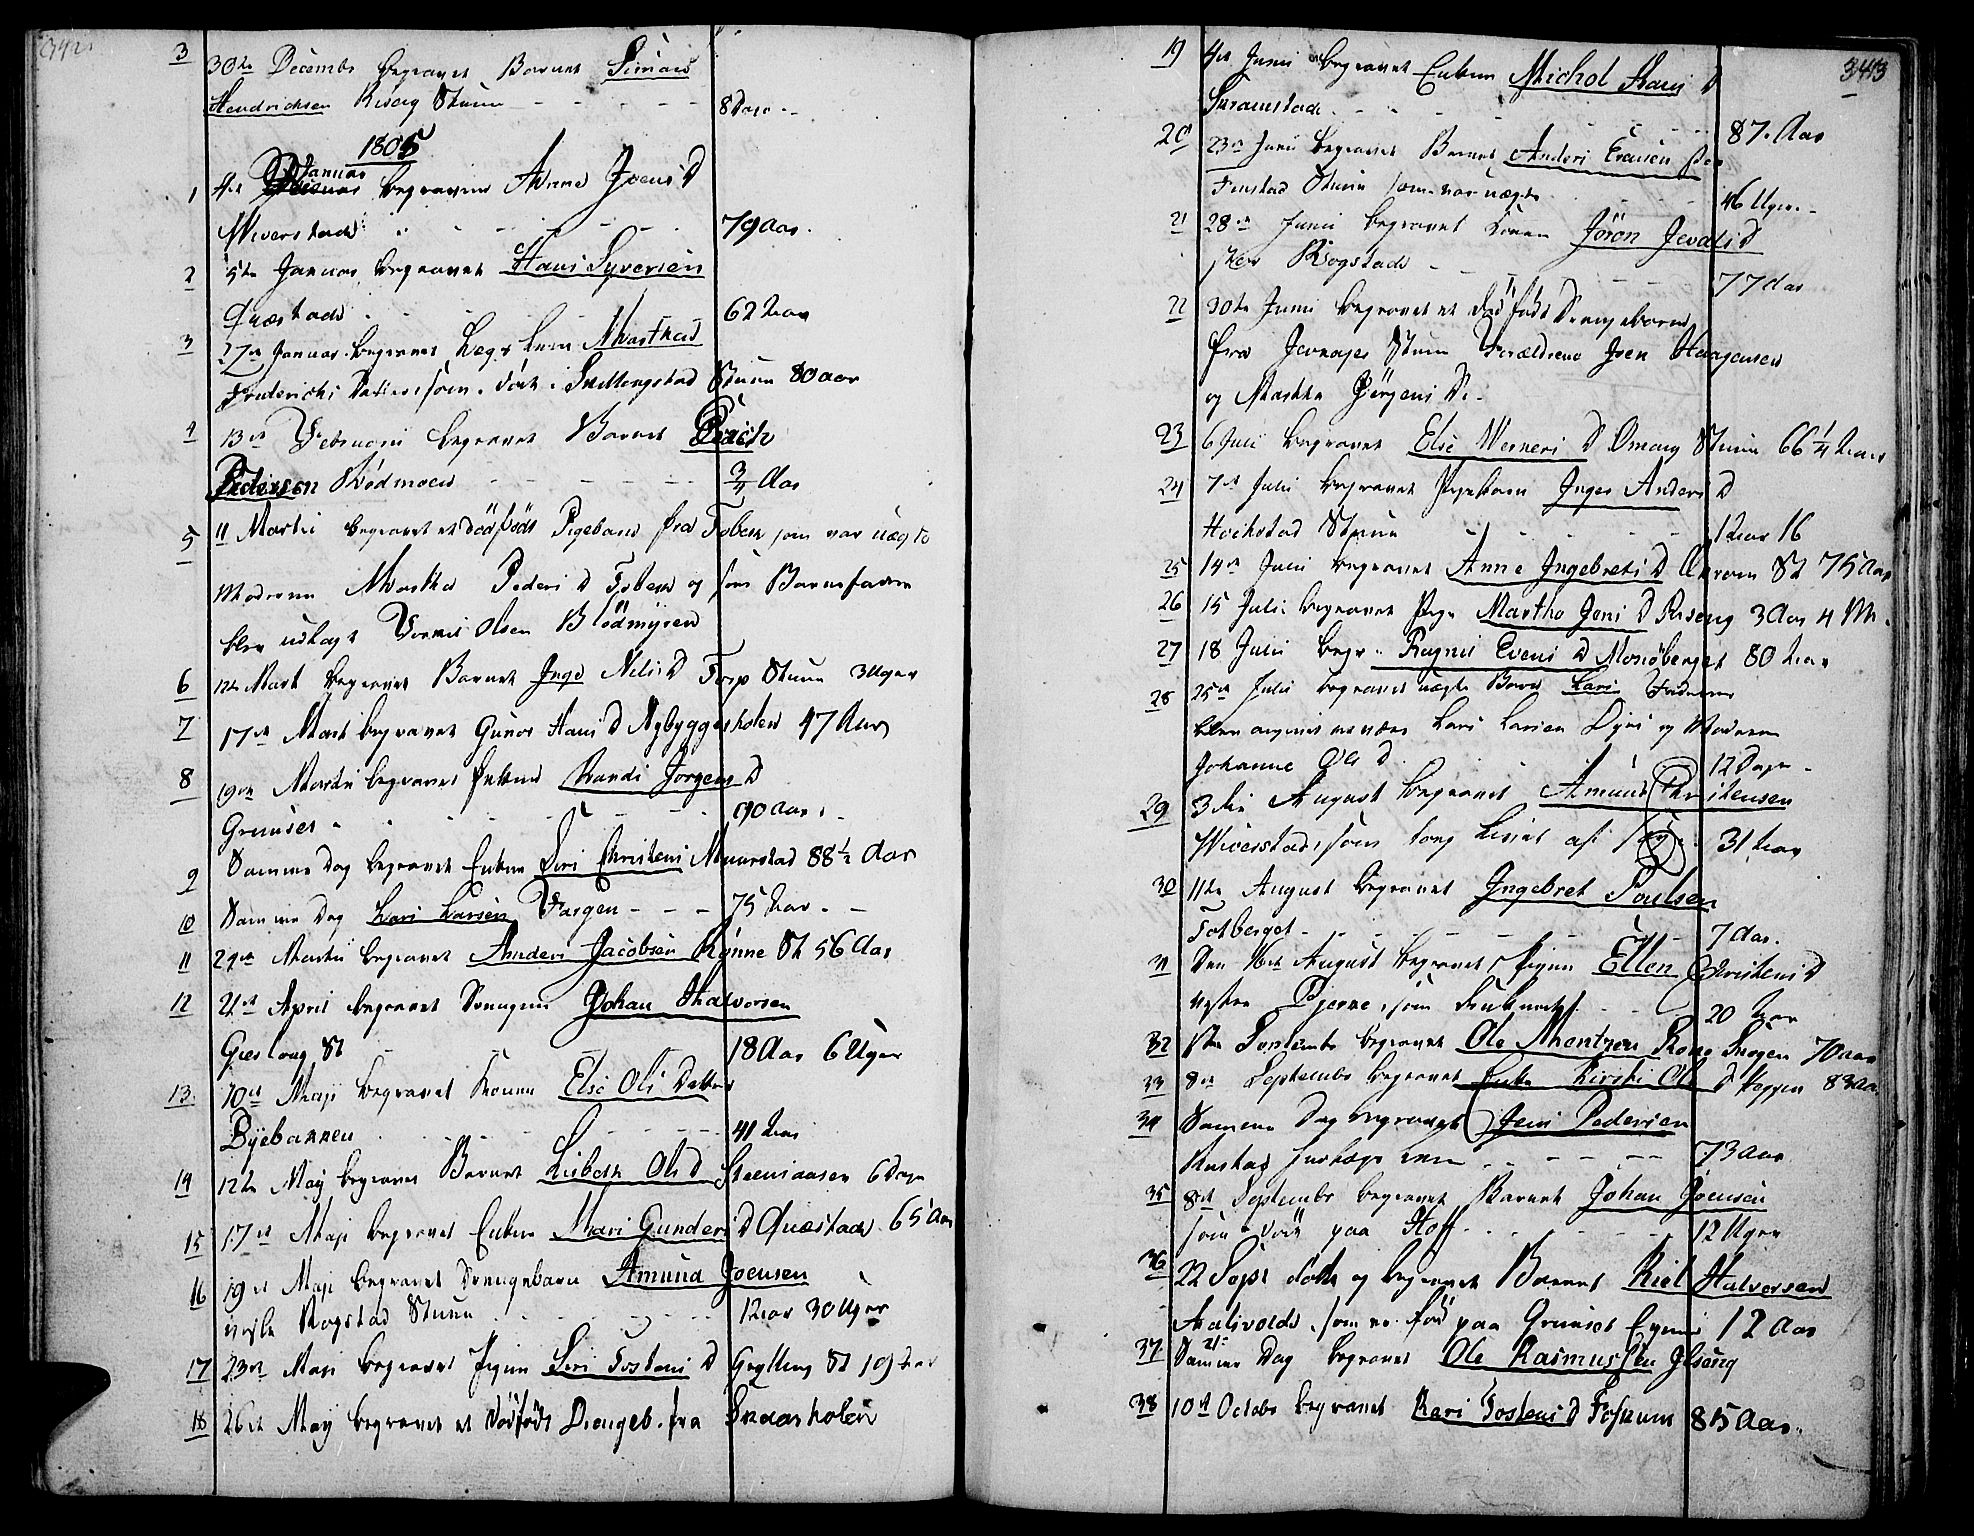 342.
3 30te Decembr begravet Barnet Simen
Hendrichsen Riseng Stuen - - - - - 8 Dage -
1805
1 4de Januar begraven Anne Joens D
Wiverstad - - - - 79 Aar.
2 5te Januar begravet Hans Syversen
Quæstad - - - - 62 Aar
3 27de Januar begravet Lægs Marthe
Frederichs Datter som døde i Snellingstad Stuen 80 aar
4 13de Februarii begravet Barnet
Pedersen Rødmoen - - - - - 3/4 Aar
5 11 Martii begravet et dødfødt Pigebarn fra Foben som var uægte
Moderen Martha Peders D Foben og som Barnefader
blev udlagt Olsen Blödmyren
6 12te Mart begravet Barnet Inge Nils D Torp Stuen 3 Uger
7 17de Mart begravet Gunor Hans D Nybyggerholen 47 Aar
8 19de Martii begravet Enken Randi Jörgens D
Grunset - - - - - 90 Aar.
9 Samme Dag begravet Enken Siri Christens D Muurstad 88 1/2 Aar
10 Samme Dag Lars Larsen Fargen - - - 75 Aar. -
11 24de Martii begravet Anders Jacobsen Rønne St 56 Aar
12 21de April begravet Drengen Johan Halvorsen
Gieslaug St - - - - 18 Aar 6 Uger
13. 10de Maji begravet Konen Else Ols Datter
Byebakken - - - - - 41 Aar
14 12te May begravet Barnet Lisbeth Ols D Steensaasen 6 Dage
15 17de Maji begravet Enken Mari Gunders D Quæstad 65 Aar
16 19de Maji begravet Drengebarn Amund Joensen
Rogstad Stuen - - - - 1 Aar 30 Uger
17 23de Maji begravet Pigen Siri Tostens D Grylling St 19 Aar
18 26de May begravet et dödfödt Drengeb. fra Snaarholen
343
19 4de Junii begravet Enken Michol Hans D
Suramstad - - - - 87. Aar
20 23de Junii begravet Barnet Anders Evensen
Finstad Stuen som var uægte - - - 46 Uger. -
21 28de Junii begravet Konen Jörön Jevals D
Rogstad - - - - 77 Aar
22 30te Junii begravet et död födt Drengebarn
fra Stuen Forældrene Joen Haagensen
og Martha Jörgens D. -
23 6 Julii begravet Else Werners D Omang Stuen 66 1/4 Aar
24 7de Julii begravet Pigebarn Inger Anders D
Hochstad Stuen - - - - 1 Aar 16
25 14de Julii begravet Anne Ingebrets D St 75 Aar
26 15 Julii begravet Pige Martha Jens D Riseng 3 Aar 4 M.
27 18 Julii begr. Ragnil Evens D Monsberget 80 Aar
28 25de Julii begravet uægte Barn Lars Faderen
blev angivet at være Lars Larsen og Moderen
Johanne Ols D. 12 Dage -
29 3die August begravet Amund Christensen
Wiverstad, som tog Livet af sig. - 31 Aar
30 11te August begravet Ingebret Poulsen
Fotberget - - - - - 7 Aar.
31 Den 16de August begravet Pigen Ellen Christens D
Bjerke, som - - 20 Aar
32 1ste Septembr begravet Ole Mentzen 70 Aar
33 8de Septembr begravet Enke Kirsti Ols D 83 Aar
34 Samme Dag begravet Jens Pedersen
Rustad - - - - 73 Aar
35 8de Septembr begravet Barnet Johan Joensen
som døde paa Hoff - - - - 12 Uger
36 22 Sept døde og begravet Barnet Kiel Halvorsen
som er föd paa Grunset 12 Aar
37 Samme Dag begravet Ole Rasmussen
38 10de Octobr begravet Kari Tostens D Fossum 85 Aar.